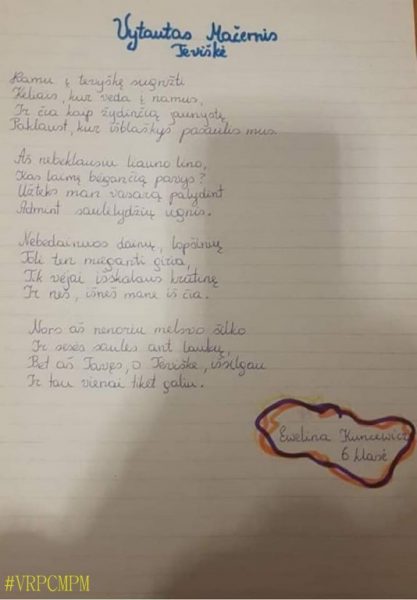 Vytautas Mačernis
Teviškė
Namu į tevyškę sugrįžti
Keliais, kur veda į namus,
Ir čia kaip žydinčią jaunystę
Paklaust, kur išblaškys pasaulis mus.
Aš nebeklausiu liauno lino,
Kas laimę bėgančią pavys?
Užteks man vasarą palydint
Atmint saulėlydžių ugnis.
Nebedainuos dainų, lopšinių
Toli ten mieganti giria,
Tik vėjai išskalaus krūtinę
Ir neš, išneš mane iš čia.
Nors aš nenoriu melsvo šilko
Ir sesės saulės ant laukų,
Bet aš Tavęs, o Teviške, išsilgau
Ir tau vienai tikėt galiu.
Ewelina Kuncewicz
6 klasė
#VRPCMPM